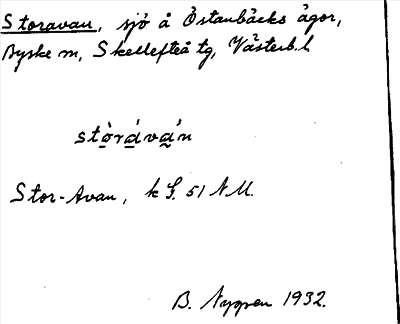 Storavan, sjö å Östanbäcks ägor,
Byske sn, Skellefteå tg, Västerb. l
stòráván
Stor-Avan, k S. 51 N.M.
B. Nyman 1932.